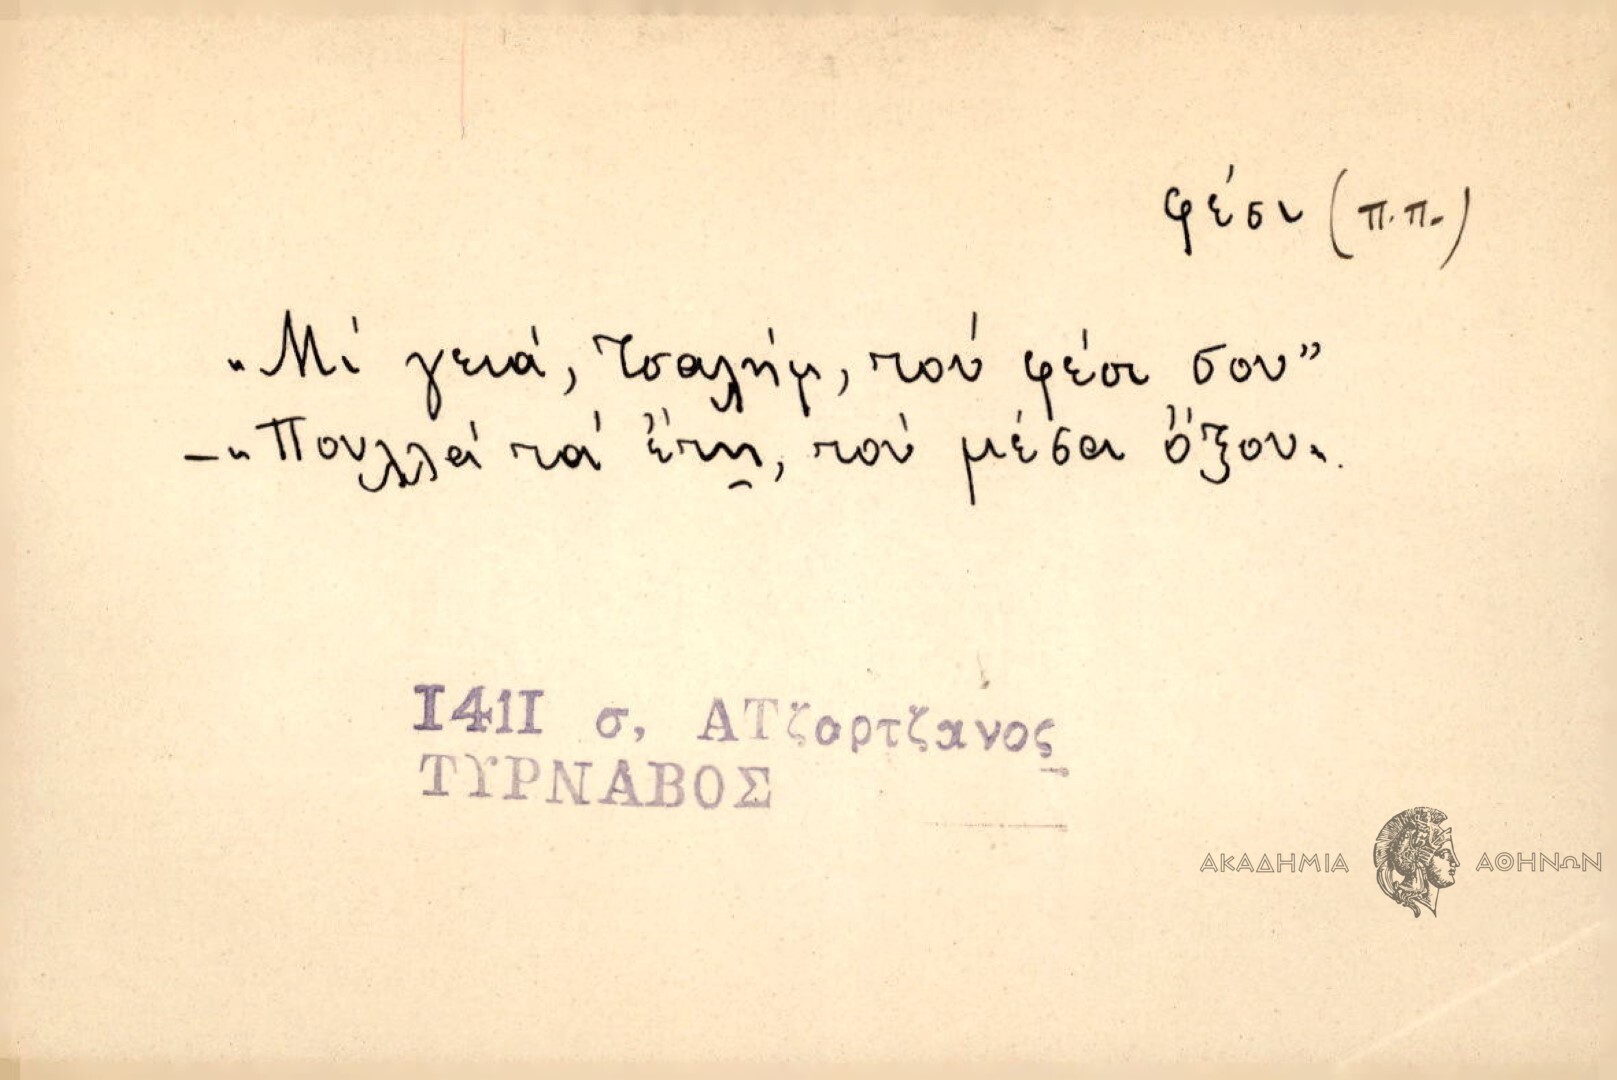 φέσι (π.π.)
„Μὶ γειά, Τσαλήμ, τοὺ φέσι σου”
—„Πουλλά τά ἔτη, τοὺ μέσα ὄξου".
I4II σ, ΑΤζαρτζανος
ΤΥΡΝΑΒΟΣ
ΑΚΑΔΗΜΙΑ ΑΘΗΝΩΝ